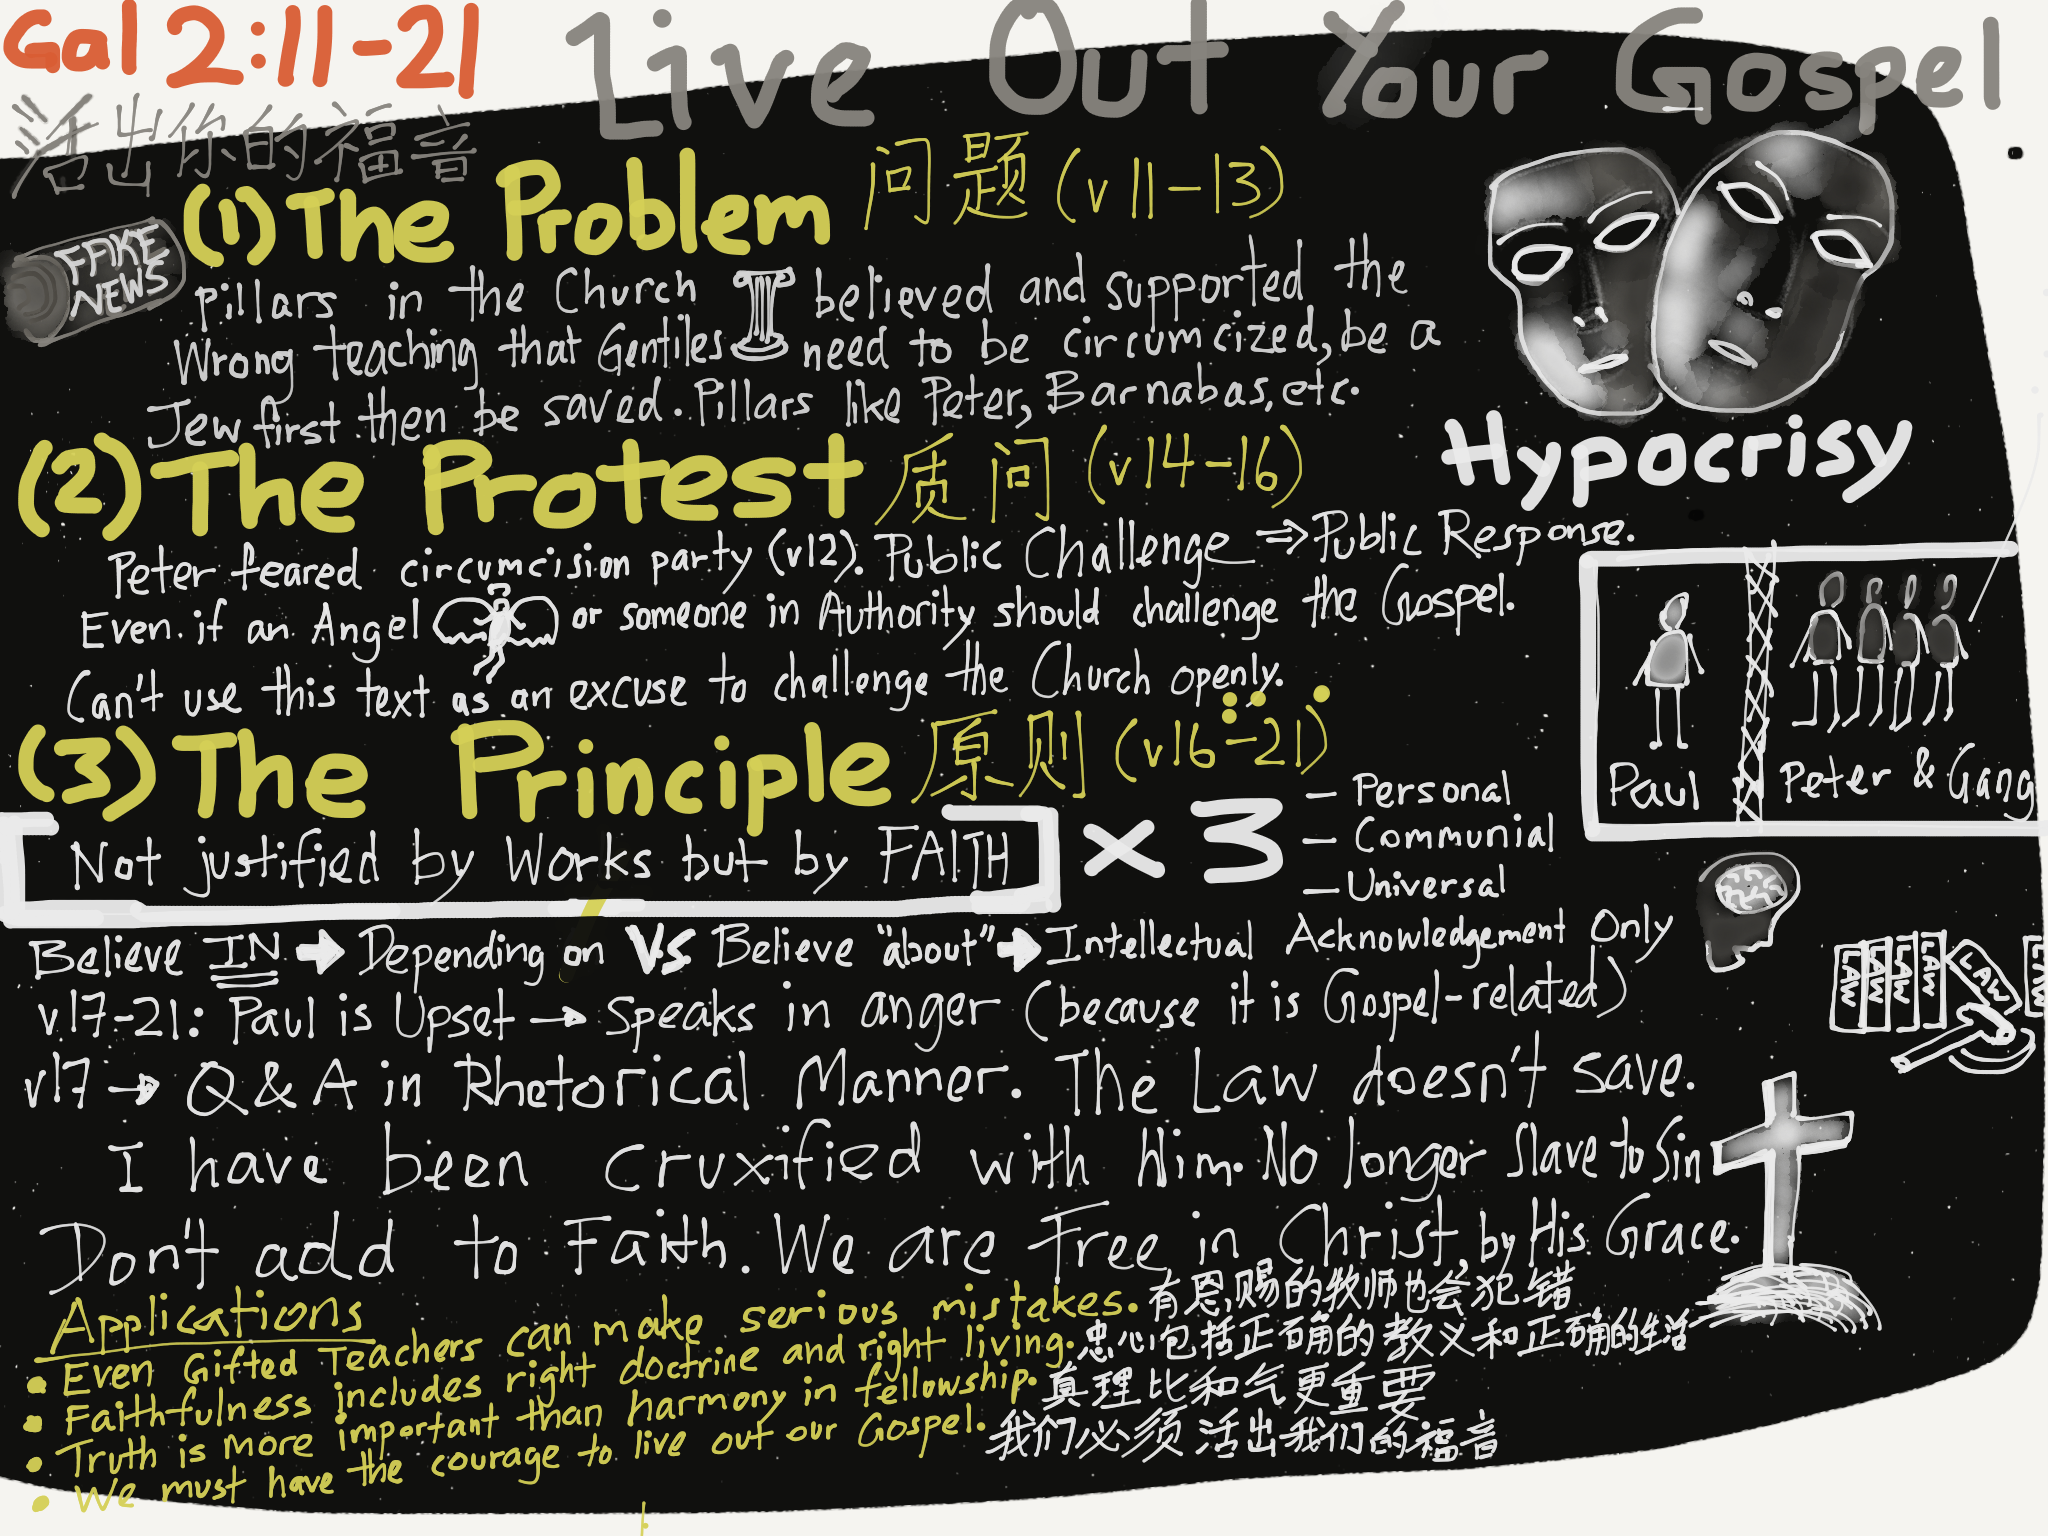 Gal 2:11-21 Live Out Your Gospel
活出你的福音
(1) The Problem 问题 (v 11-13)
FAKE
NEWS
Pillars in the Church believed and supported the
Wrong teaching that Gentiles need to be circumcized, be a
Jew first then be saved. Pillars like Peter, Barnabas, etc.
Hypocrisy
(2) The Protest 质问 (v14-16)
Peter feared circumcision party (v12). Public Challenge ⇒ Public Response.
Even if an Angel or someone in Authority should challenge the Gospel.
Can't use this text as an excuse to challenge the Church openly.
Paul Peter & Gang
(3) The Principle 原则 (v16-21)
[Not justified by Works but by FAITH] x 3
- Personal
- Communial
- Universal
Believe IN → Depending on Vs Believe "about" → Intellectual Acknowledgement Only
LAW LAW LAW LAW LAW LAW
v17-21: Paul is Upset → Speaks in anger (because it is Gospel-related)
v17 → Q & A in Rhetorical Manner. The Law doesn't save.
I have been cruxified with Him. No longer Slave to Sin
Don't add to Faith. We are Free in Christ by His Grace.
Applications
• Even Gifted Teachers can make serious mistakes. 有恩赐的牧师也会犯错
• Faithfulness includes right doctrine and right living. 忠心包括正确的教义和正确的生活
• Truth is more important than harmony in fellowship. 真理比和气更重要
• We must have the courage to live out our Gospel. 我们必须活出我们的福音